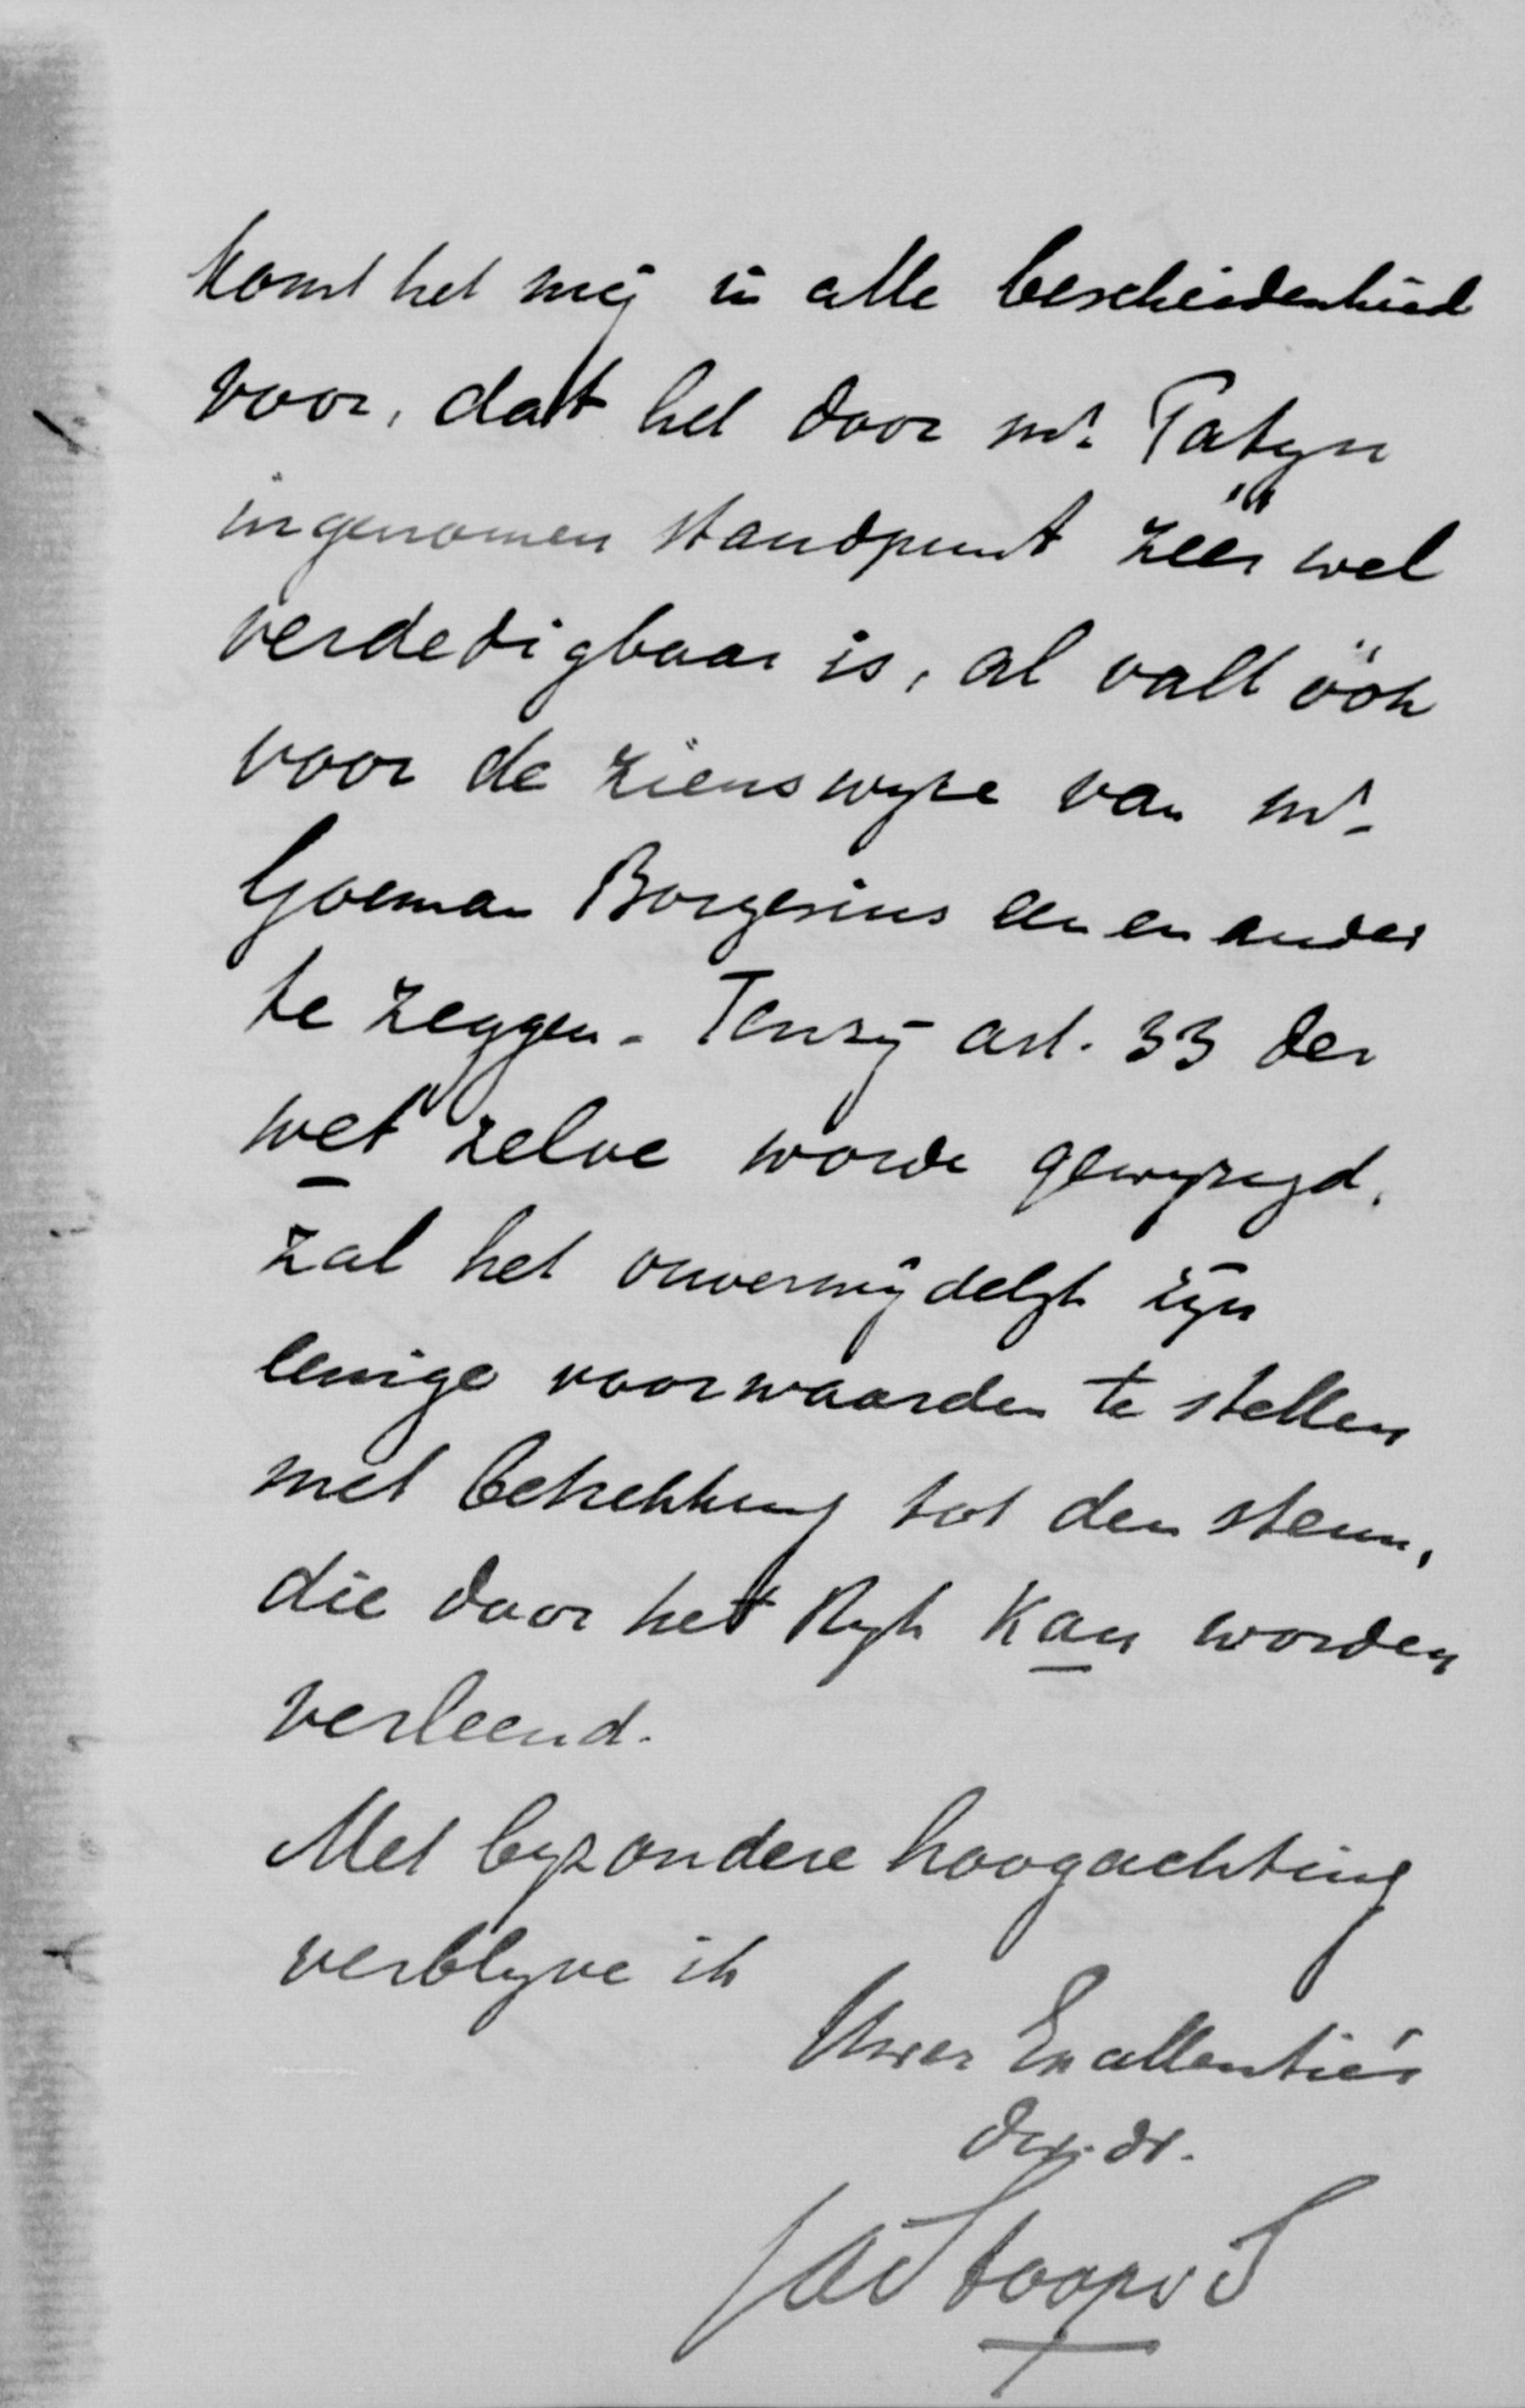 komt het mij in alle bescheidenheid
voor, dat het door mr. Patijn
ingenomen standpunt zéér wel
verdedigbaar is, al valt óók
voor de zienswijze van mr.
Goeman Borgesius een en ander
te zeggen. Tenzij art. 33 der
wet zelve worde gewijzigd,
zal het onvermijdelijk zijn
eenige voorwaarden te stellen
met betrekking tot den steun,
die door het Rijk kan worden
verleend.
Met bijzondere hoogachting
verblijve ik
Uwer Excellentie's
dr.